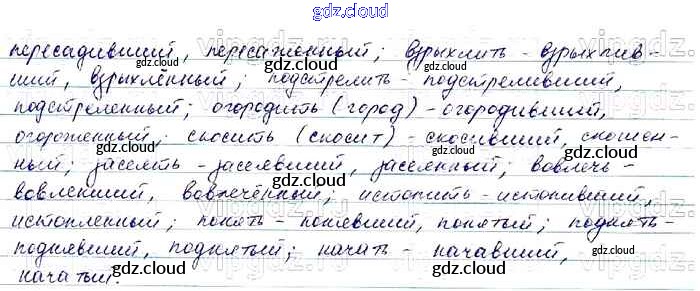 gdz.cloud
пересадивший, пересаженный; взрыхлить - взрыхлив-
ший, взрыхлённый; подстрелить - подстреливший,
подстреленный; огородить (город) - огородивший,
огороженный; скосить (скосит) - скосивший, скошен-
ный; засеять - засеявший, засеянный; вовлечь -
вовлекший, вовлечённый; истопить - истопивший,
истопленный; понять - понявший, понятый; поднять -
поднявший, поднятый; начать - начавший,
начатый.